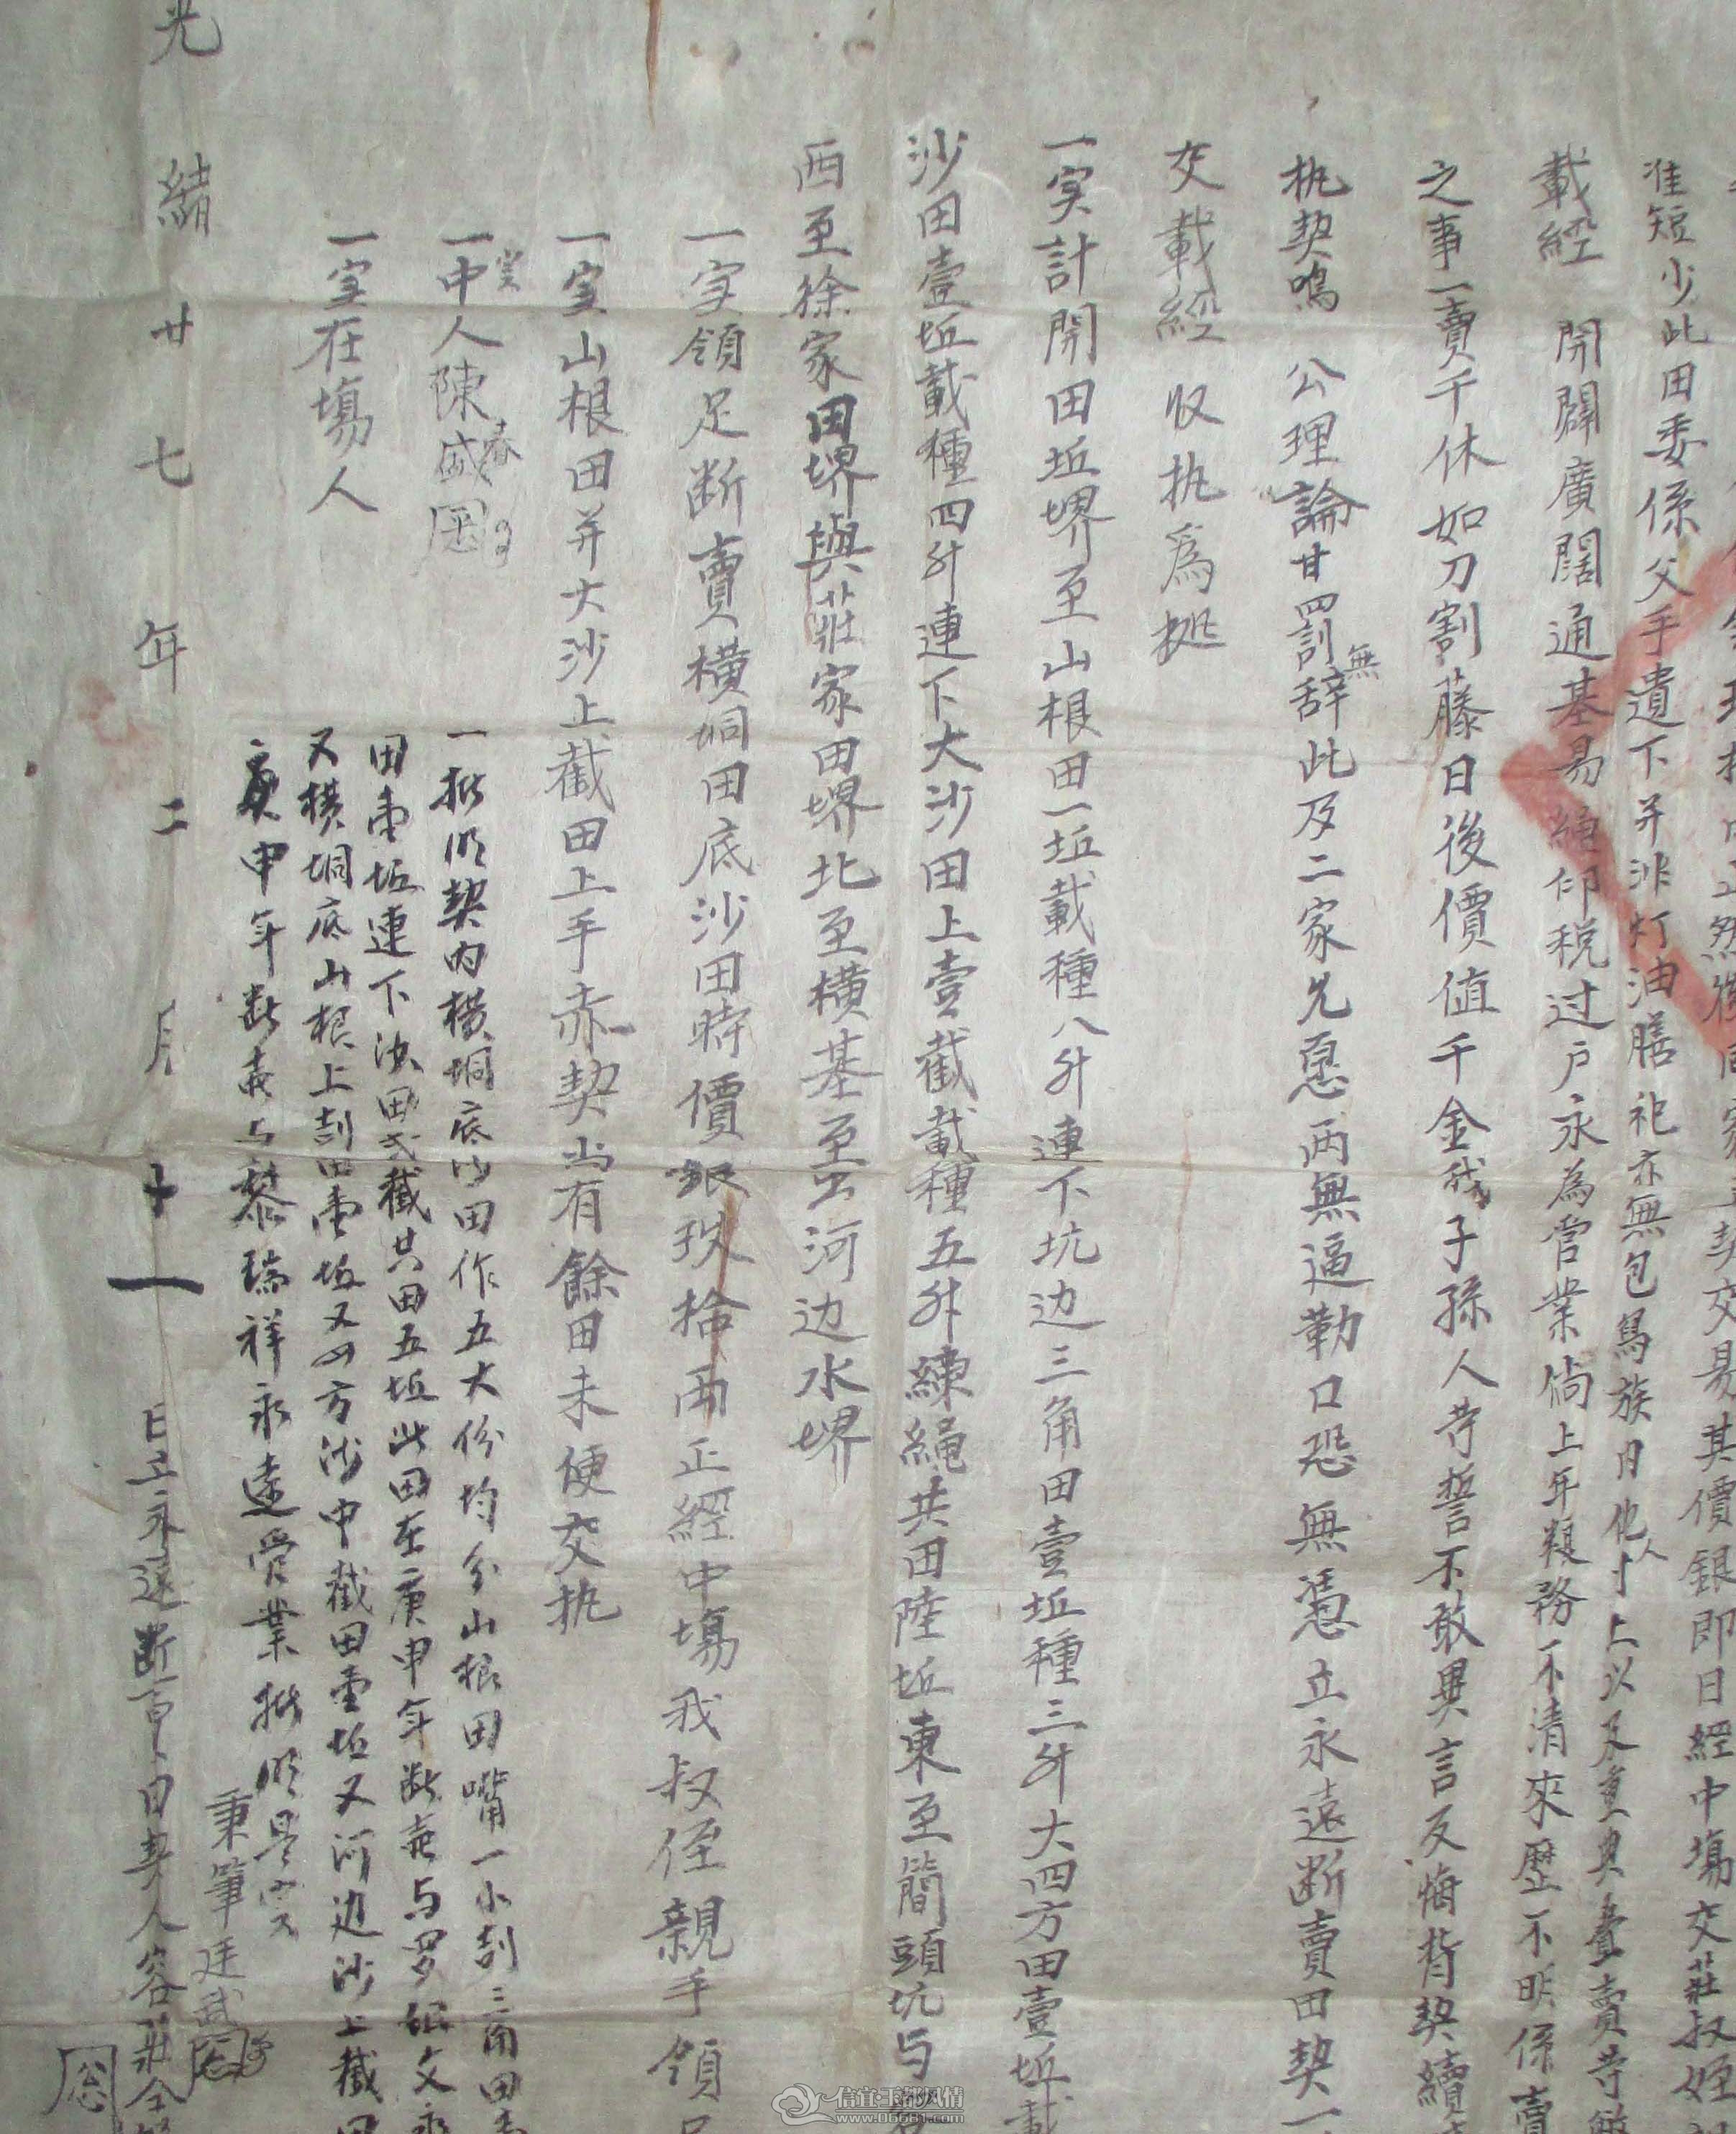 契交易其價銀即日經中塲交莊叔姪
准短少此田委係父手遺下并非灯油膳祀亦無包為族內他人寸上以及重典叠賣等
載經 開闢廣闊通基易繩仰税过户永為管業倘上年粮務不清來歷不明係賣
之事一賣千休如刀割藤日後價值千金我子孫人等誓不敢異言反悔背契續
执契鳴 公理論甘罰無辞此及二家允愿两無逼勒口恐無憑立永遠断賣田契一
交載經 收执為拠
一寔計開田坵堺至山根田一坵載種八升連下坑边三角田壹坵種三升大四方田壹坵載
沙田壹坵載種四升連下大沙田上壹截載種五升練繩共田陸坵東至簡頭坑与
西至徐家田堺與莊家田堺北至橫基至河边水堺
一寔領足断賣橫垌田底沙田時價銀玖拾両正經中塲我叔侄親手領足
一寔山根田并大沙上截田上手赤契尚有餘田未便交执
一寔中人陳盛春
一寔在塲人
一批明契内橫垌底沙田作五大份均分山根田嘴一小刮三角田壹
田壹坵連下沙田弍截共田五坵此田在庚申年断賣与罗文永
又橫垌底山根上刮田壹坵又四方沙中截田壹坵又河边沙上截田
庚申年断賣与黎瑞祥永遠管業批明是寔
秉筆廷武
光緒廿七年二月十一日立永遠断賣田契人容莊全
信宜·玉都风情
www.06681.com